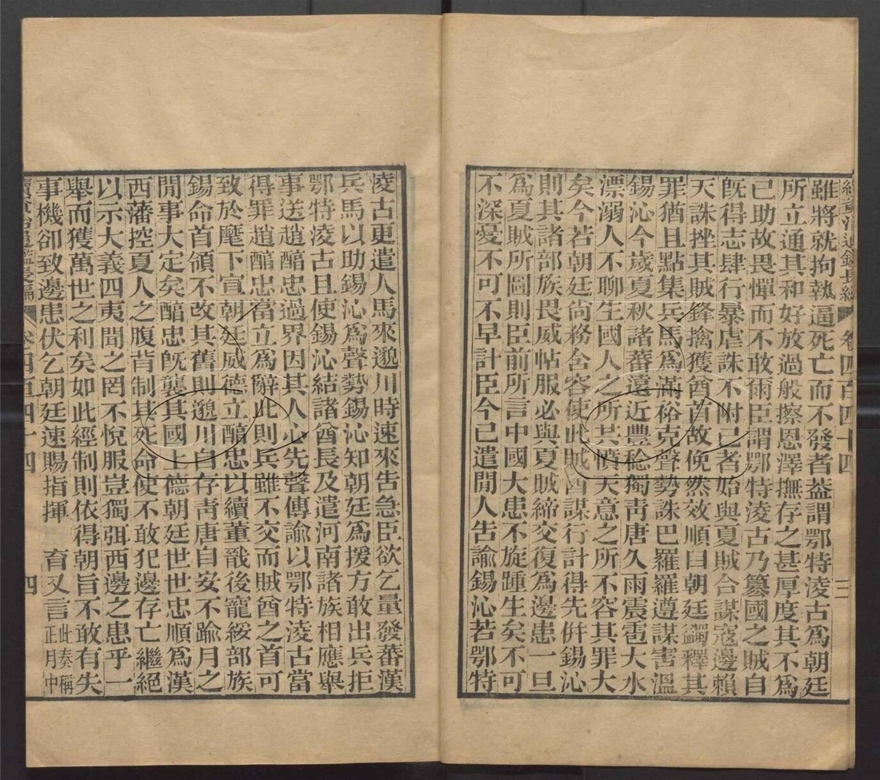 續資治通鑑長編 卷四百四十四 三
雖將就拘執逼死亡而不發者蓋謂鄂特凌古為朝廷
所立通其和好放過般擦恩澤撫存之甚厚度其不為
已助故畏憚而不敢爾臣謂鄂特凌古乃篡國之賊自
旣得志肆行暴虐誅不附己者始與夏賊合謀寇邊賴
天誅挫其賊鋒擒獲酋首故俛然效順曰朝廷蠲釋其
罪猶且點集兵馬為滿裕克聲勢誅巴羅羅遵謀害溫
錫沁今歲夏秋諸蕃遠近豐稔獨靑唐久雨震雹大水
漂溺人不聊生國人之所共憤天意之所不容其罪大
矣今若朝廷尙務含容使此賊酋謀行計得先併錫沁
則其諸部族畏威帖服必與夏賊締交復為邊患一旦
為夏賊所圖則臣前所言中國大患不旋踵生矣不可
不深憂不可不早計臣今已遣閒人告諭錫沁若鄂特
凌古更遣人馬來邈川時速來告急臣欲乞量發蕃漢
兵馬以助錫沁為聲勢錫沁知朝廷為援方敢出兵拒
鄂特凌古且使錫沁結諸酋長及遣河南諸族相應舉
事送趙醇忠過界因其人心先聲傳諭以鄂特凌古當
得罪趙醇忠當立為辭此則兵雖不交而賊酋之首可
致於麾下宣朝廷威德立醇忠以續董戩後寵綏部族
錫命首領不改其舊則邈川自存靑唐自安不踰月之
閒事大定矣醇忠旣襲其國上德朝廷世世忠順為漢
西藩控夏人之腹背制其死命使不敢犯邊存亡繼絕
以示大義四夷聞之罔不悅服豈獨弭西邊之患乎一
舉而獲萬世之利矣如此經制則依得朝旨不敢有失
事機卻致邊患伏乞朝廷速賜指揮 育又言此奏稱正月中
續資治通鑑長編 卷四百四十四 四